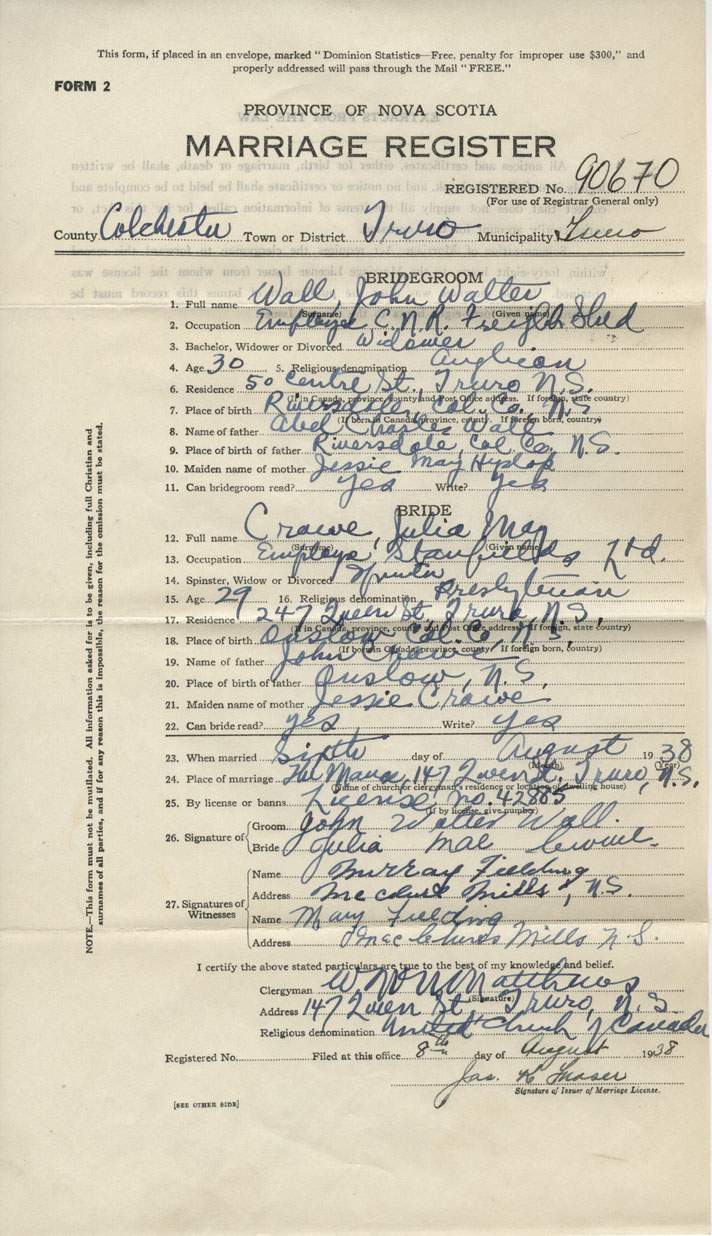 This form, if placed in an envelope, marked "Dominion Statistics—Free, penalty for improper use $300," and
properly addressed will pass through the Mail "FREE."
FORM 2
PROVINCE OF NOVA SCOTIA
MARRIAGE REGISTER
REGISTERED No. 90670
(For use of Registrar General only)
County Colchester Town or District Truro Municipality Truro
BRIDEGROOM
1. Full name Wall, John Walter
(Surname) (Given name)
2. Occupation Employe C.N.R. Freight Shed
3. Bachelor, Widower or Divorced Widower
4. Age 30 5. Religious denomination Anglican
6. Residence 50 Centre St., Truro N.S.
(If in Canada, province, county and Post Office address. If foreign, state country)
7. Place of birth Riversdale, Col. Co., N.S
(If born in Canada, province, county. If foreign born, country)
8. Name of father Abel Charles Wall
9. Place of birth of father Riversdale, Col Co, N.S.
10. Maiden name of mother Jessie May Hyslop
11. Can bridegroom read? Yes Write? Yes
BRIDE
12. Full name Crawe, Julia May
(Surname) (Given name)
13. Occupation Employe, Stanfields Ltd.
14. Spinster, Widow or Divorced Spinster
15. Age 29 16. Religious denomination Presbyterian
17. Residence 247 Queen St., Truro N.S.,
(If in Canada, province, county and Post Office address. If foreign, state country)
18. Place of birth Onslow Col. Co, N.S.,
(If born in Canada, province, county. If foreign born, country)
19. Name of father John Crawe
20. Place of birth of father Onslow, N.S,
21. Maiden name of mother Jessie Crawe
22. Can bride read? yes Write? yes
23. When married Sixth day of August 1938
(Month) (Year)
24. Place of marriage The Manse, 147 Queen St. Truro, N.S.
(Name of church or clergyman's residence or location of dwelling house)
25. By license or banns License no. 42885
(If by license, give number)
26. Signature of { Groom John Walter Wall.
Bride Julia Mae
27. Signatures of Witnesses { Name Murray Fielding
Address Mills, N.S.
Name Mary Fielding
Address Mills N S.
I certify the above stated particulars are true to the best of my knowledge and belief.
Clergyman Matthews
(Signature)
Address 147 Queen St., Truro, N.S
Religious denomination United Church of Canada
Registered No. Filed at this office 8th day of August 1938
Jas. K Fraser
Signature of Issuer of Marriage License.
[SEE OTHER SIDE]
NOTE.—This form must not be mutilated. All information asked for is to be given, including full Christian and
surnames of all parties, and if for any reason this is impossible, the reason for the omission must be stated.